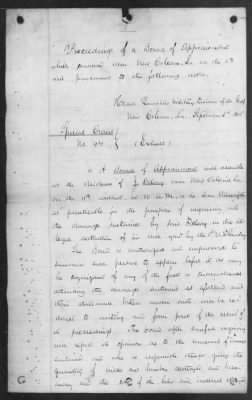 Proceedings of a Board of Appraisement
which convened near New Orleans, La. on the 11th
inst. pursuant to the following order.
Head Quarters Military Division of the Gulf
New Orleans, La. September 6th 1865
Special Order
No.
(Extract)
A Board of Appraisement will assemble
at the residence of J. near New Orleans La.
on the 11th instant, at 10 A.M., or as soon thereafter
as practicable for the purpose of enquiring into
the damage sustained by said in the al-
leged destruction of his by the
The Board is authorized and empowered to
summon such persons to appear before it as may
be cognizant of any of the facts or circumstances
attending the damage sustained as aforesaid and
other
duced to writing and form part of the record of
its proceedings. The board after careful enquiry
will report its opinion as to the amount of damage
sustained and who is responsible therefor, giving the
quantity of and lumber destroyed and
away and the cost of the labor and incidental